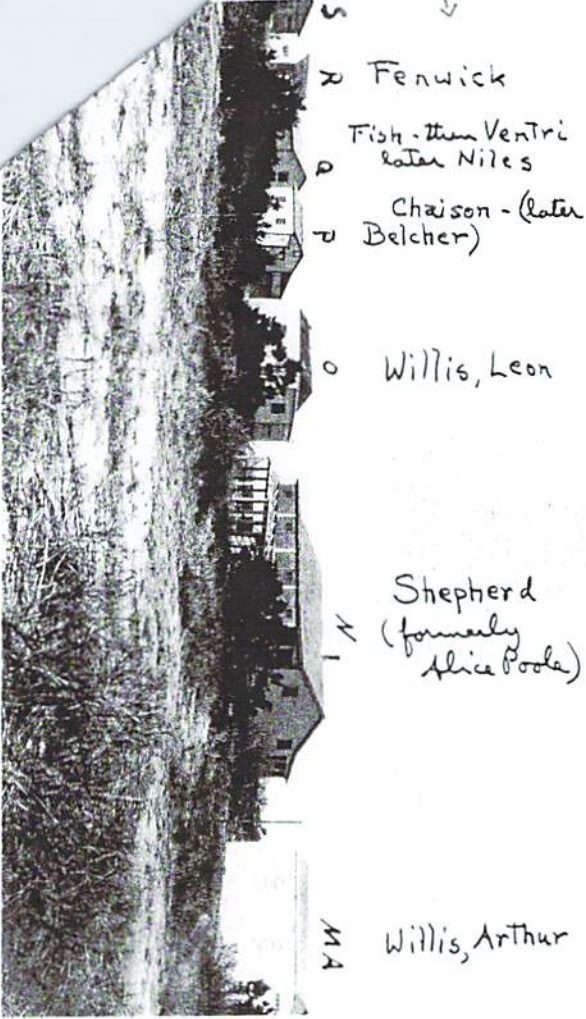 S
R Fenwick
Fish - then Ventri
Q later Niles
Chaison - (later
P Belcher)
O Willis, Leon
Shepherd
N (formerly
Alice Poole)
MA Willis, Arthur